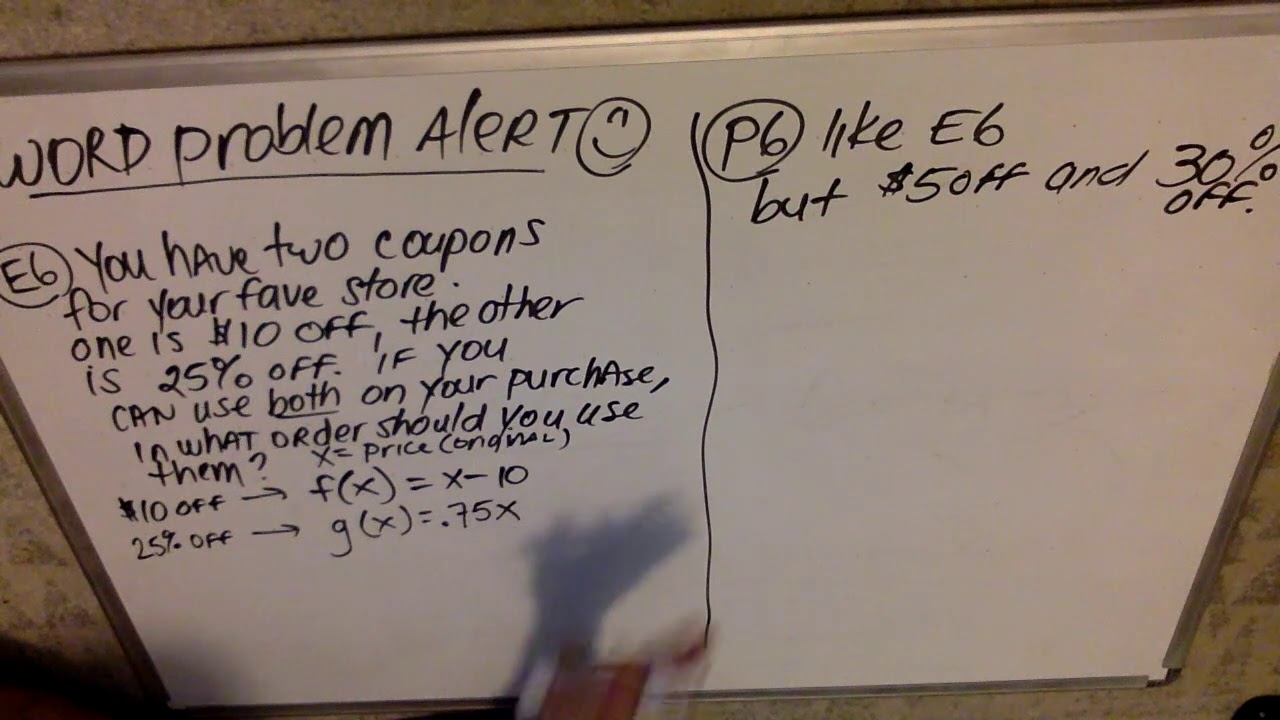 WORD problem AlERT
E6 You hAve two coupons
for your fave store.
one is $10 OFF, the other
is 25% OFF. IF YOU
CAN use both on your purchAse,
In whAT ORder should you use
them? x = price (original)
$10 OFF → f(x) = x - 10
25% OFF → g(x) = .75x
P6 like E6
but $5 OFF and 30%
OFF.